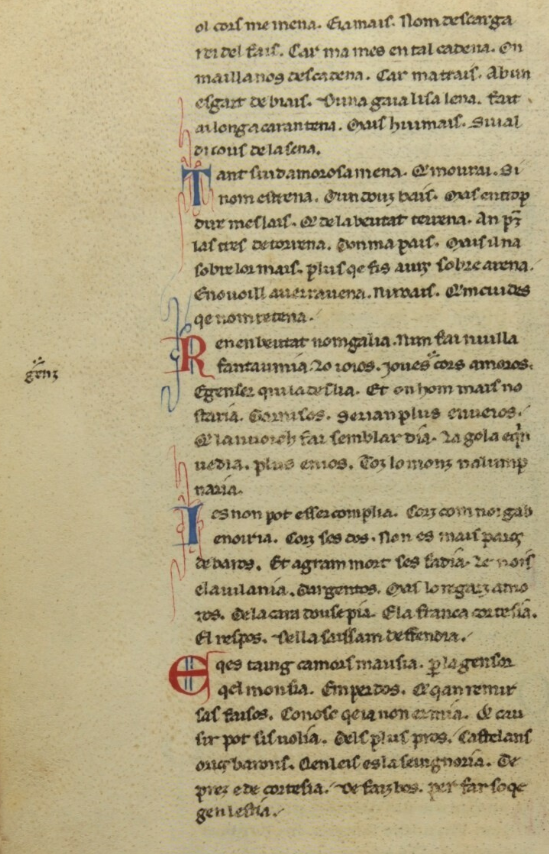 ol cors me mena. Eia mais. Nom descarga
rdel fais. Car ma mes en tal cadena. On
mailla nos descadena. Car mattais. Abun
esgart de biais. Duna gaia lisa lena. Fait
ai longa carantena. Mas hui mais. Si ual
di tous de la sena.
Tant sui damorosa mena. Qe mourai. Si
nom estrena. Dun douz bais. Mas en trop
dur mes lais. Qe de la beutat terrena. An pz
las tres de torrena. Don ma pais. Mas il na
sobre lor mais. plus qe fis aurs sobre arena.
E no uoill auer rauena. Ni roais. Qem cuides
qe nom retena.
Ren en beutat nom galia. Nim fai nuilla
fantaumia. Lo ioios. ioues cors amoros.
genz
E genser qui la deslia. Et on hom mais no
staria. Garnisos. Serian plus enueios.
Qe la nuoich fai semblar dia. La gola eqin
uedia. plus enios. Toz lo monz nalump
naria.
Ies non pot esser complia. Cors com noi gab
e noi ria. Cors ses dos. Non es mais parers
de baros. Et agram mort ses fadia. Le nois
e la uilania. Dargentos. Mas lo regarz amo
ros. De la cara douse pia. E la franca cortesia.
El respos. Sella saissam deffendia.
E qes taing camors mausia. p la gensor
qel mon sia. Em perdos. Qe qan remir
sas faisos. Conosc qe ia non er mia. Qe cau
sir pot sis uolia. Dels plus pros. Castelans
o rics barons. Qen leis es la seingnoria. De
prez e de cortesia. De faiz bos. per far so qe
gen lestia.